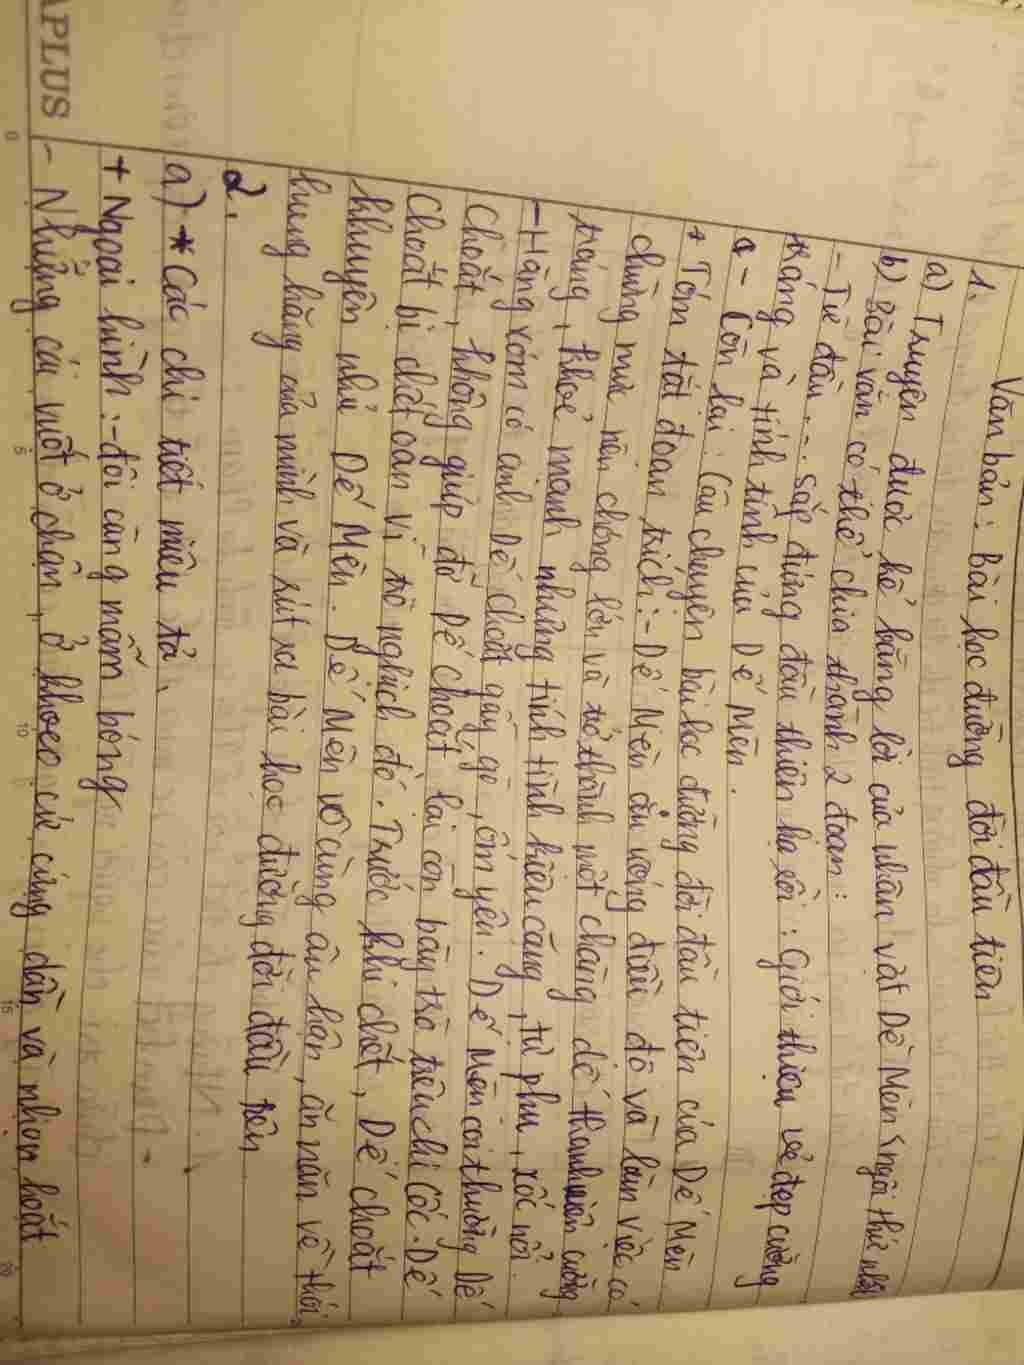 Văn bản: Bài học đường đời đầu tiên
1.
a) Truyện được kể bằng lời của nhân vật Dế Mèn, ngôi thứ nhất
b) Bài văn có thể chia thành 2 đoạn:
- Từ đầu... sắp đứng đầu thiên hạ rồi: Giới thiệu vẻ đẹp cường
tráng và tính tình của Dế Mèn.
- Còn lại: Câu chuyện bài học đường đời đầu tiên của Dế Mèn
+ Tóm tắt đoạn trích: - Dế Mèn ăn uống điều độ và làm việc có
chừng mực nên chóng lớn và trở thành một chàng dế thanh niên cường
tráng, khoẻ mạnh nhưng tính tình kiêu căng, tự phụ, xốc nổi.
- Hàng xóm có anh Dế choắt gầy gò, ốm yếu. Dế Mèn coi thường Dế
choắt, không giúp đỡ Dế choắt lại còn bày trò trêu chị Cốc. Dế
choắt bị chết oan vì trò nghịch đó. Trước khi chết, Dế choắt
khuyên nhủ Dế Mèn. Dế Mèn vô cùng ân hận, ăn năn về thói
hung hăng của mình và rút ra bài học đường đời đầu tiên
2.
a) * Các chi tiết miêu tả.
+ Ngoại hình: - đôi càng mẫm bóng
- Những cái vuốt ở chân, ở khoeo cứ cứng dần và nhọn hoắt
APLUS
0 5 10 15 20